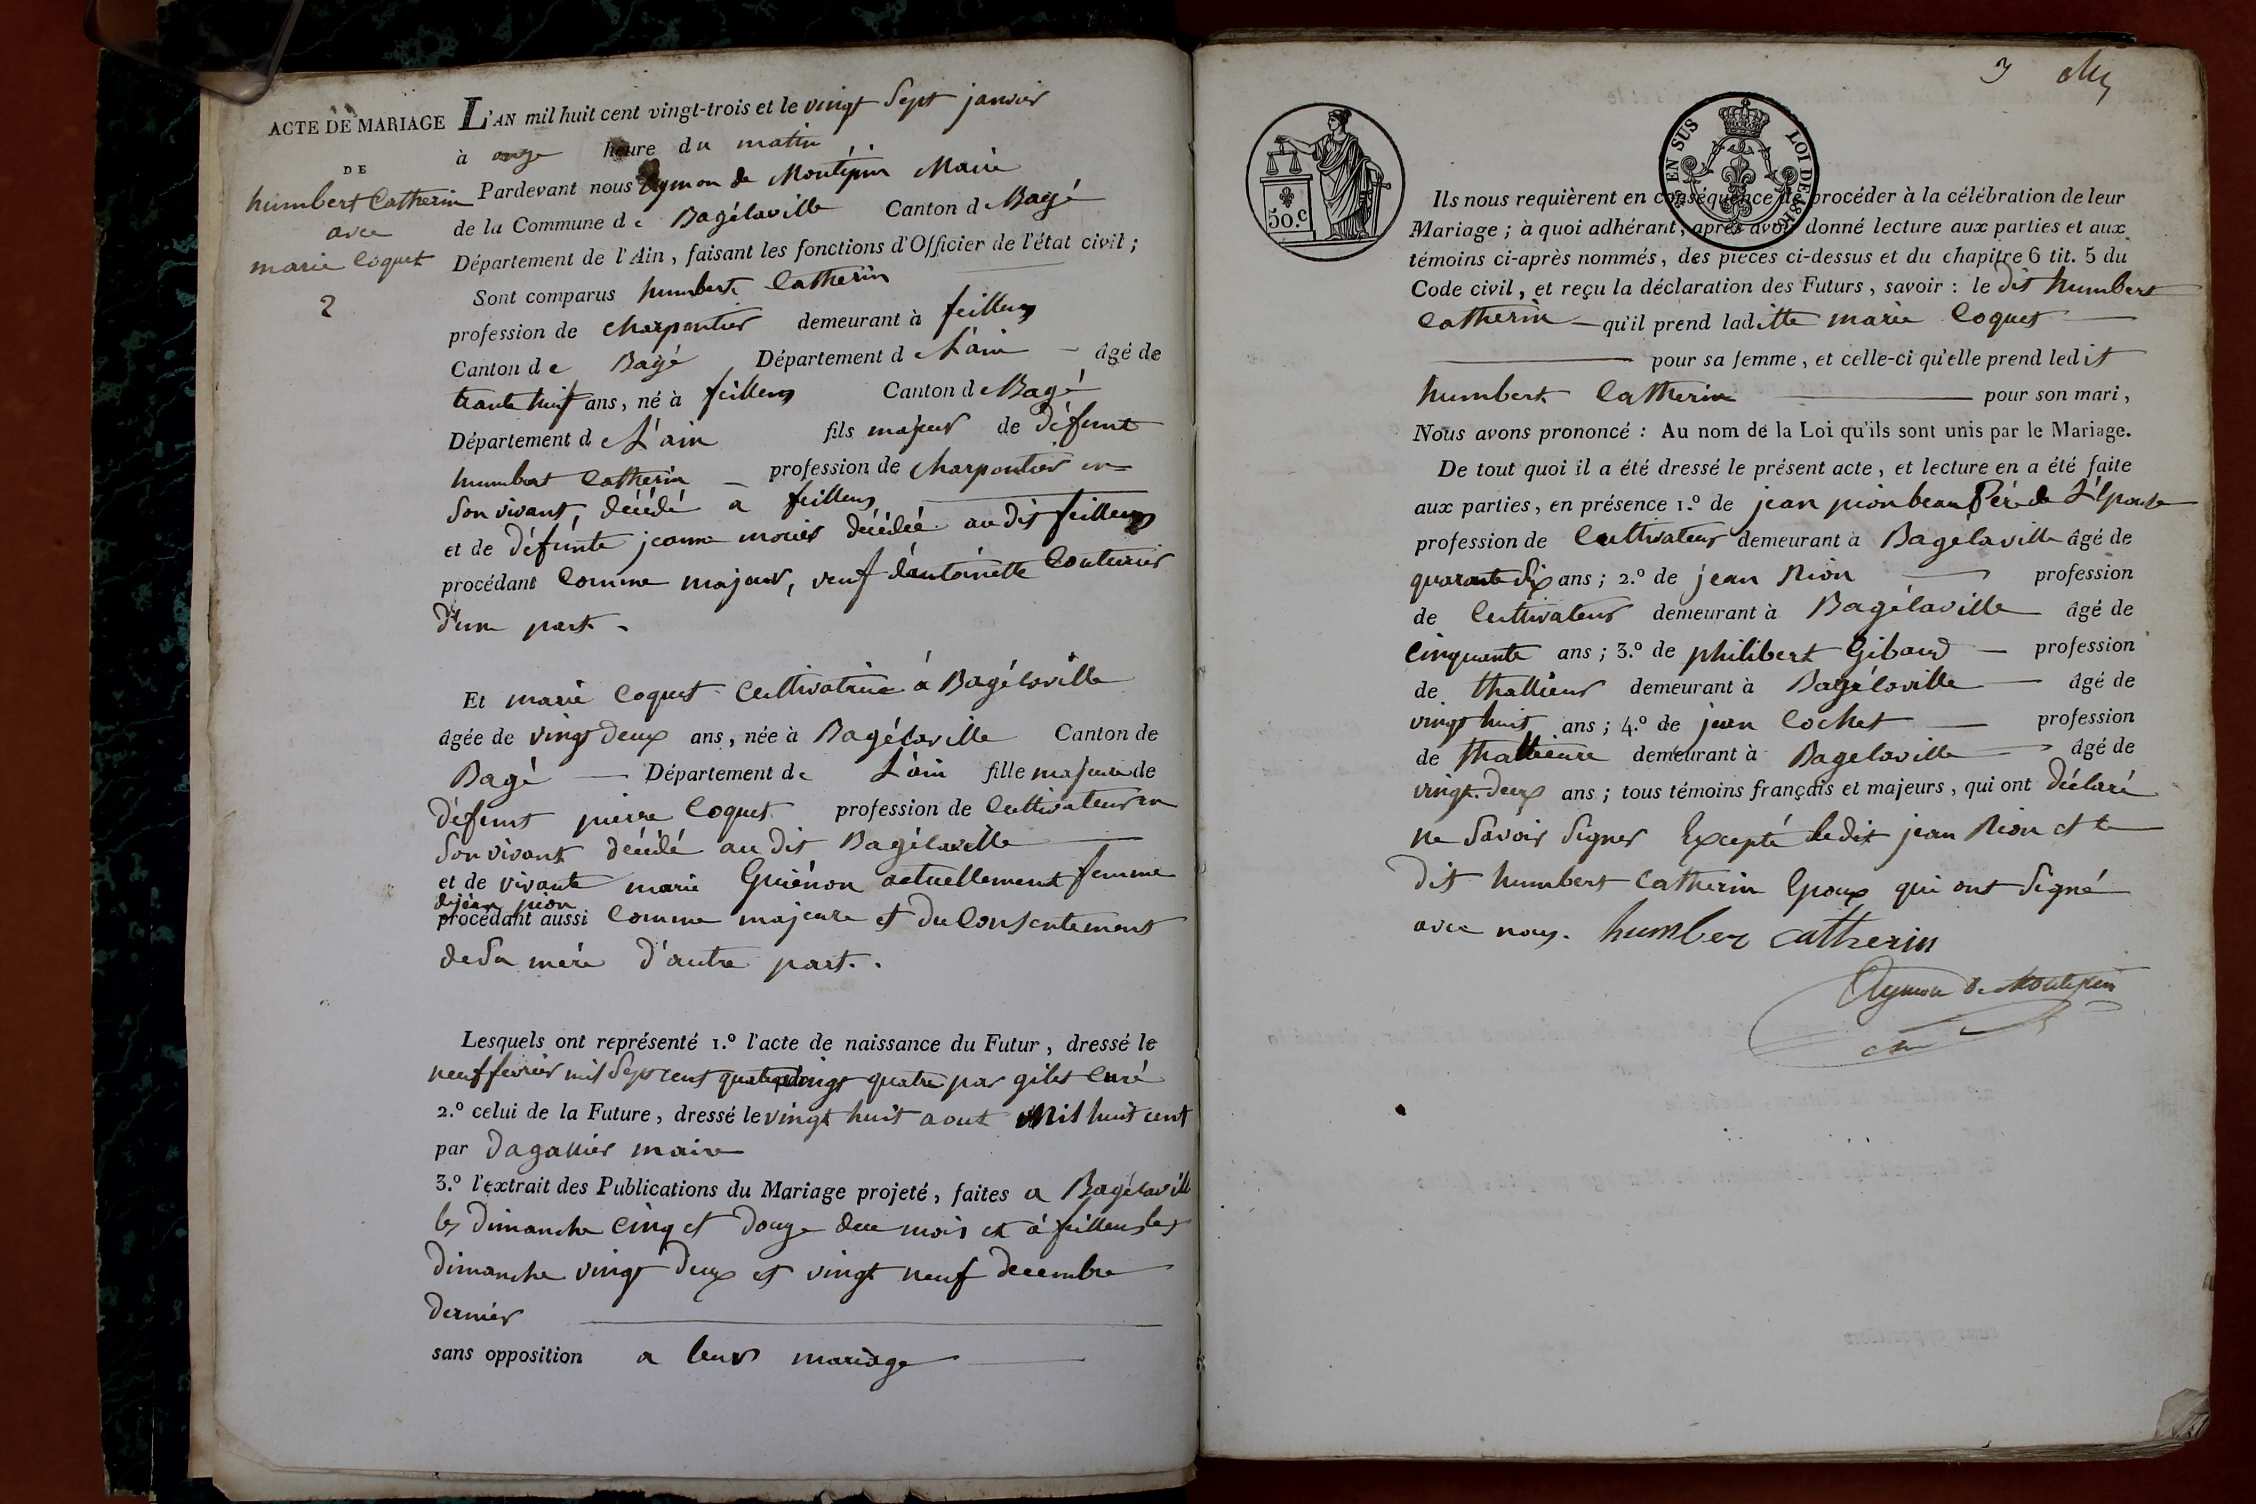 ACTE DE MARIAGE
DE
humbert Catherin
avec
marie Coquet
2
L'AN mil huit cent vingt-trois et le vingt Sept janvier
à onze heure du matin
Pardevant nous Aymon de Montépin Maire
de la Commune de Bagélaville Canton de Bagé
Département de l'Ain, faisant les fonctions d'Officier de l'état civil ;
Sont comparus humbert Catherin
profession de charpentier demeurant à feillens
Canton de Bagé Département de L'ain âgé de
trante huit ans, né à feillens Canton de Bagé
Département de L'ain fils majeur de défunt
humbert Catherin profession de charpentier en
Son vivant, décédé a feillens
et de défunte jeanne décédée au dit feillens
procédant Comme majeur, veuf d'antoinette Couturier
d'une part.
Et marie Coquet Cultivatrice à Bagélaville
âgée de vingt deux ans, née à Bagélaville Canton de
Bagé Département de L'ain fille majeure de
défunt pierre Coquet profession de Cultivateur en
Son vivant décédé au dit Bagélaville
et de vivante marie Guénon actuellement femme
de jean pion
procédant aussi Comme majeure et du Consentement
de Sa mère d'autre part.
Lesquels ont représenté 1.º l'acte de naissance du Futur, dressé le
neuf fevrier mil Sept cent quatre vingt quatre par giles Curé
2.º celui de la Future, dressé le vingt huit aout Mil huit cent
par Dagallier maire
3.º l'extrait des Publications du Mariage projeté, faites a Bagélaville
les Dimanche Cinq et Douze du mois et à feillens les
Dimanche vingt Deux et vingt neuf decembre
Dernier
sans opposition a leur mariage
3
50.C
EN SUS LOI DE 1816
Ils nous requièrent en conséquence de procéder à la célébration de leur
Mariage ; à quoi adhérant, après avoir donné lecture aux parties et aux
témoins ci-après nommés, des pièces ci-dessus et du chapitre 6 tit. 5 du
Code civil, et reçu la déclaration des Futurs, savoir : le dit humbert
Catherin qu'il prend laditte marie Coquet
pour sa femme, et celle-ci qu'elle prend ledit
humbert Catherin pour son mari,
Nous avons prononcé : Au nom de la Loi qu'ils sont unis par le Mariage.
De tout quoi il a été dressé le présent acte, et lecture en a été faite
aux parties, en présence 1.º de jean pion beau Péré de L'Epouse
profession de Cultivateur demeurant à Bagelaville âgé de
quarante Six ans ; 2.º de jean Rion profession
de Cultivateur demeurant à Bagélaville âgé de
Cinquante ans ; 3.º de philibert Gibaud profession
de thallieur demeurant à Bagélaville âgé de
vingt huit ans ; 4.º de jean Cochet profession
de demeurant à Bagelaville âgé de
vingt-Deux ans ; tous témoins français et majeurs, qui ont déclaré
ne Savoir Signer Excepté le dit jean Rion et le
dit humbert Catherin Epoux qui ont Signé
avec nous. humber catherin
Aymon de Montepin